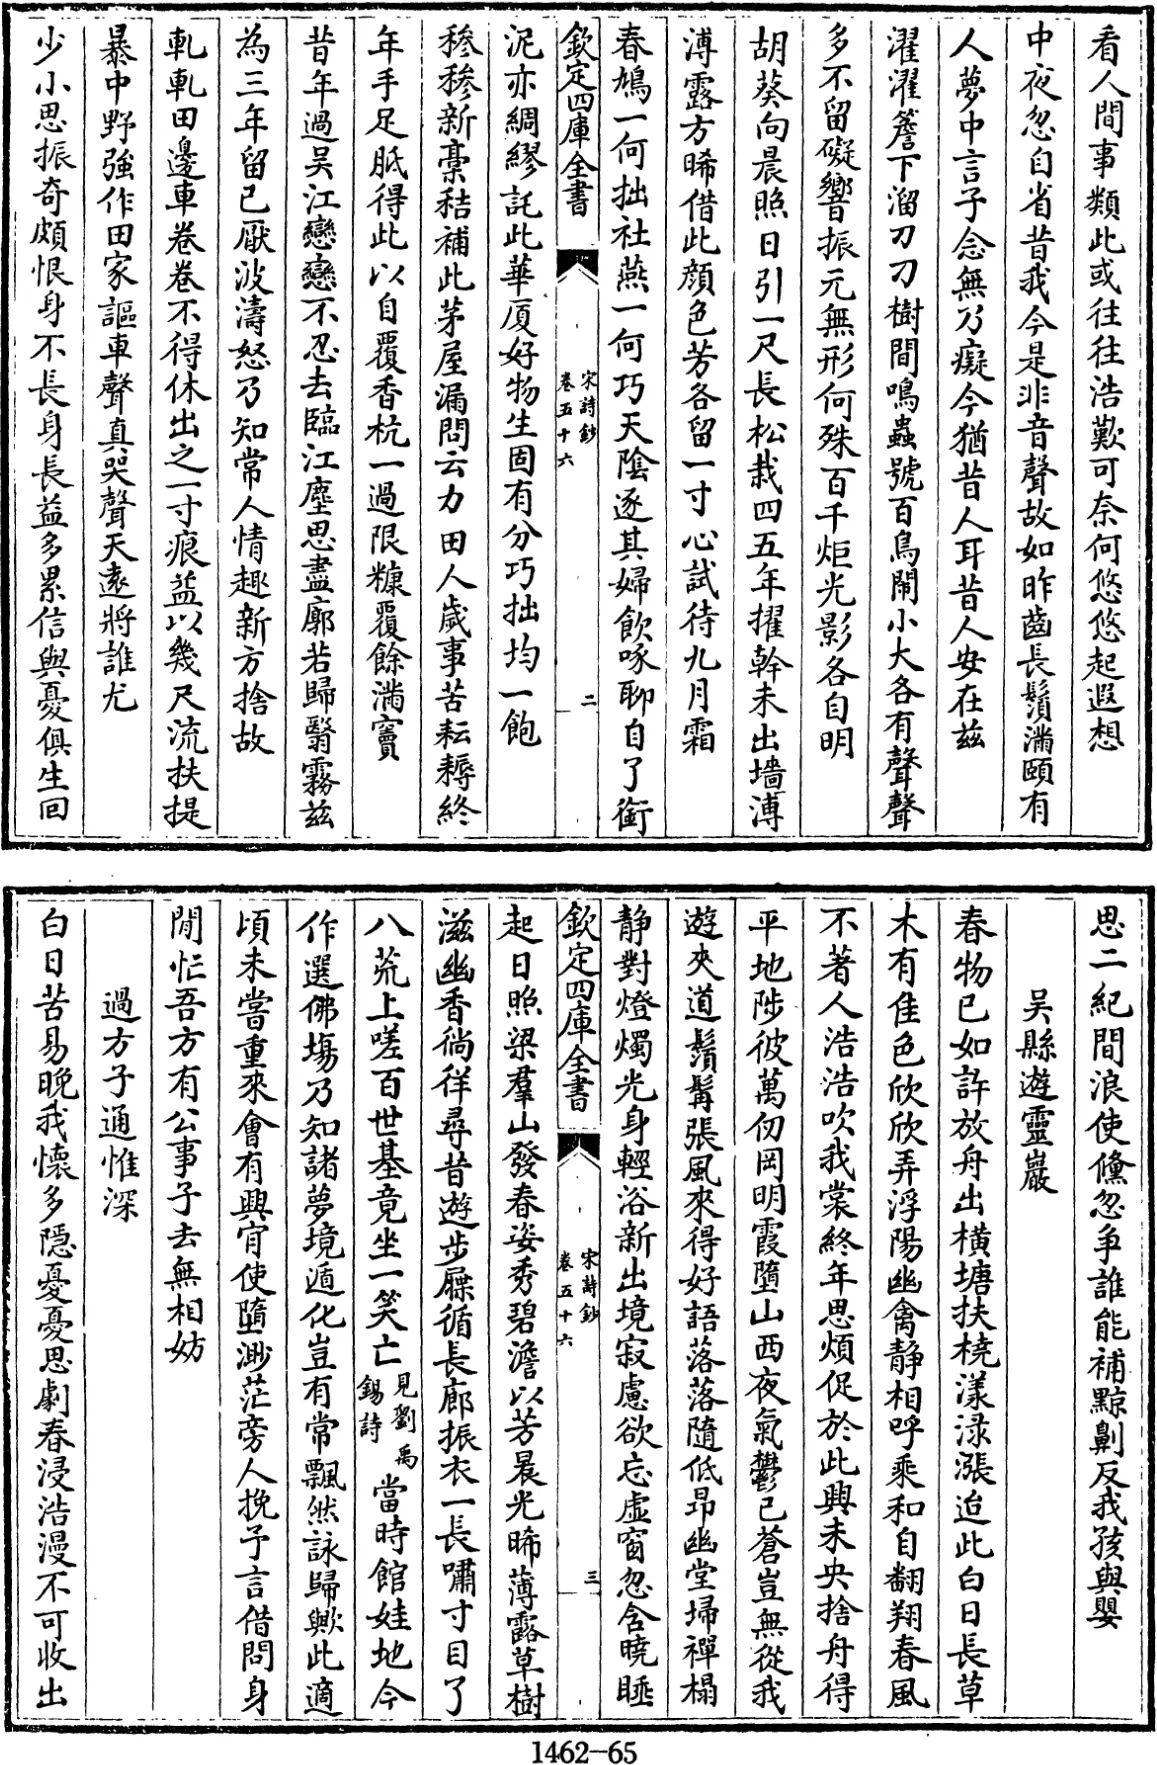 看人間事類此或往往浩歎可奈何悠悠起遐想
中夜忽自省昔我今是非音聲故如昨齒長鬚滿頤有
人夢中言子念無乃癡今猶昔人耳昔人安在茲
濯濯簷下溜刀刀樹間鳴蟲號百鳥鬧小大各有聲聲
多不留礙響振元無形何殊百千炬光影各自明
胡葵向晨照日引一尺長松栽四五年擢幹未出墻溥
溥露方晞借此顔色芳各留一寸心試待九月霜
春鳩一何拙社燕一何巧天陰逐其婦飲啄聊自了銜
欽定四庫全書
宋詩鈔
卷五十六
二
泥亦綢繆託此華厦好物生固有分巧拙均一飽
穇穇新藁秸補此茅屋漏問云力田人歲事苦耘耨終
年手足胝得此以自覆香杭一過限糠覆餘滿竇
昔年過吴江戀戀不忍去臨江塵思盡廓若歸翳霧茲
為三年留已厭波濤怒乃知常人情趣新方捨故
軋軋田邊車卷卷不得休出之一寸痕益以幾尺流扶提
暴中野強作田家謳車聲真哭聲天遠將誰尤
少小思振奇頗恨身不長身長益多累信與憂俱生回
思二紀間浪使儵忽爭誰能補黥劓反我孩與嬰
吴縣遊靈巖
春物已如許放舟出橫塘扶橈漾淥漲迫此白日長草
木有佳色欣欣弄浮陽幽禽静相呼乘和自翻翔春風
不著人浩浩吹我裳終年思煩促於此興未央捨舟得
平地陟彼萬仞岡明霞墮山西夜氣鬱已蒼豈無從我
遊夾道鬚髯張風來得好語落落隨低昂幽堂埽禪榻
静對燈燭光身輕浴新出境寂慮欲忘虛窗忽含曉睡
欽定四庫全書
宋詩鈔
卷五十六
三
起日照梁羣山發春姿秀碧澹以芳晨光晞薄露草樹
滋幽香徜徉尋昔遊步屧循長廊振衣一長嘯寸目了
八荒上嗟百世基竟坐一笑亡見劉禹錫詩當時館娃地今
作選佛塲乃知諸夢境遁化豈有常飄然詠歸歟此適
頃未嘗重來會有興肯使墮渺茫旁人挽予言借問身
閒忙吾方有公事子去無相妨
過方子通惟深
白日苦易晚我懷多隱憂憂思劇春浸浩漫不可收出
1462-65